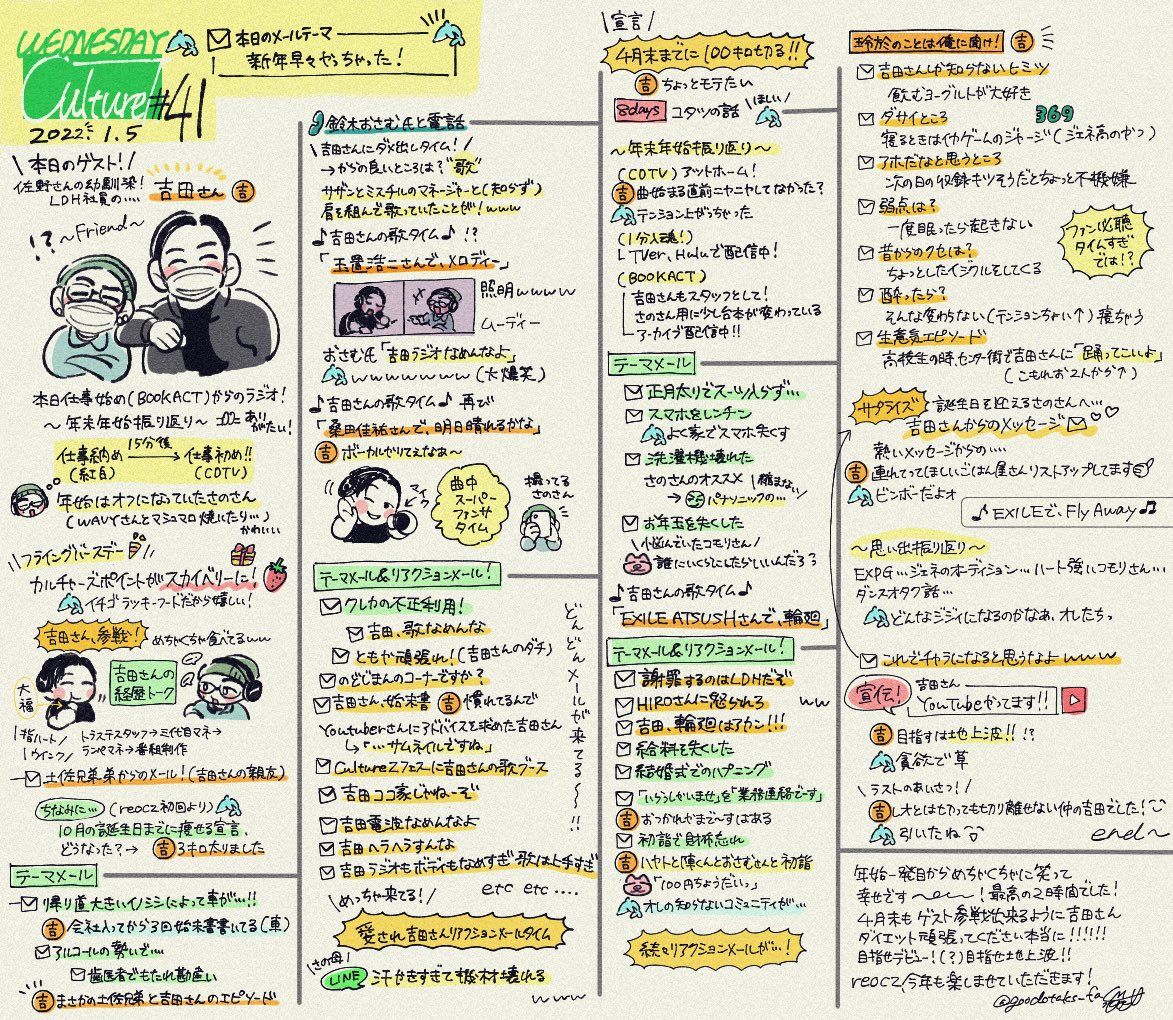 WEDNESDAY
Culture! #41
2022年 1.5
本日のメールテーマ
新年早々やっちゃった!
\本日のゲスト!/
佐野さんの幼馴染!
LDH社員の…
吉田さん 吉
!? 〜Friend〜
本日仕事始め(BOOKACT)からのラジオ!
〜年末年始振り返り〜
ありがたい!
仕事納め 15分後 → 仕事初め!!
(紅白) (CDTV)
年始はオフになっていたさのさん
(WAVYさんとマシュマロ焼いたり…)
かわいい
\フライングバースデー//
カルチャーズポイントがスカイベリーに!
イチゴラッキーフードだから嬉しい!
吉田さん、参戦! めちゃくちゃ食べてるww
大福
吉田さんの
経歴トーク
\指ハート/
\ウインク/
トラステスタッフ→三代目マネ→
ランペマネ→番組制作
土佐兄弟弟からのメール!(吉田さんの親友)
ちなみに… (reocz初回より)
10月の誕生日までに痩せる宣言、
どうなった?→ 吉 3キロ太りました
テーマメール
帰り道大きいイノシシによって車が…!!
吉 会社入ってから3回始末書書いてる(車)
アルコールの勢いで…
歯医者でもたれ勘違い
吉 まさかの土佐兄弟と吉田さんのエピソード
鈴木おさむ氏と電話
\吉田さんにダメ出しタイム!/
→からの良いところは?"歌"
サザンとミスチルのマネージャーと(知らず)
肩を組んで歌っていたことが!www
♪吉田さんの歌タイム♪ !?
「玉置浩二さんで、メロディー」
照明wwww
ムーディー
おさむ氏「吉田ラジオなめんなよ」
wwwwwww(大爆笑)
♪吉田さんの歌タイム♪ 再び
「桑田佳祐さんで、明日晴れるかな」
吉 ボーカルやりてえなあ〜
マイク
曲中
スーパー
ファンサ
タイム
撮ってる
さのさん
テーマメール&リアクションメール!
クレカの不正利用!
吉田、歌なめんな
ともか頑張れ!(吉田さんのダチ)
のどじまんのコーナーですか?
吉田さん、始末書 吉 慣れてるんで
Youtuberさんにアドバイスを求めた吉田さん
↳「…サムネイルですね」
CultureZフェスに吉田さんの歌ブース
吉田ココ家じゃねーぞ
吉田電波なめんなよ
吉田ヘラヘラすんな
吉田ラジオもボディもなめすぎ 歌は上手すぎ
どんどんメールが来てる〜〜!!
\めっちゃ来てる!/ etc etc ....
愛され吉田さんリアクションメールタイム
\さの母!/
LINE 汗かきすぎて機材壊れる
www
\宣言/
4月末までに100キロ切る!!
吉 ちょっとモテたい
8days コタツの話 \ほしい/
〜年末年始振り返り〜
(CDTV) アットホーム!
吉 曲始まる直前ニヤニヤしてなかった?
テンション上がっちゃった
(1分入魂!)
└TVer、Huluで配信中!
(BOOKACT)
吉田さんもスタッフとして!
さのさん用に少し台本が変わっている
アーカイブ配信中!!
テーマメール
正月太りでスーツ入らず…
スマホをレンチン
よく家でスマホ失くす
洗濯機壊れた
さのさんのオススメ \縮まない/
→ パナソニックの…
お年玉を失くした
\小悩んでいたコモリさん/
誰にいくらにしたらいいんだろう
♪吉田さんの歌タイム♪
「EXILE ATSUSHIさんで、輪廻」
テーマメール&リアクションメール!
謝罪するのはLDHだぞ
HIROさんに怒られろ ww
吉田、輪廻はアカン!!!
給料を失くした
結婚式でのハプニング
「いらっしゃいませ」を「業務連絡でーす」
吉 おつかれさま〜すはある
初詣で財布忘れ
吉 ハヤトと陣くんとおさむさんと初詣
「100円ちょうだいっ」
オレの知らないコミュニティが…
続々リアクションメールが…!
玲於のことは俺に聞け! 吉
吉田さんしか知らないヒミツ
飲むヨーグルトが大好き
ダサイところ 369
寝るときはイカゲームのジャージ(ジェネ高のやつ)
アホだなと思うところ
次の日の収録キツそうだとちょっと不機嫌
弱点は?
一度眠ったら起きない
昔からのクセは?
ちょっとしたイジワルをしてくる
ファン必聴
タイムすぎ
では!?
酔ったら?
そんな変わらない(テンションちょい↑)寝ちゃう
生意気エピソード
高校生の時、センター街で吉田さんに「踊ってこいよ」
(こもれお2人から↑)
サプライズ 誕生日を迎えるさのさんへ…
吉田さんからのメッセージ
熱いメッセージからの…
吉 連れてってほしいごはん屋さんリストアップしてます
ビンボーだよォ
♪EXILEで、Fly Away♫
〜思い出振り返り〜
EXPG…ジェネのオーディション…ハート強いコモリさん…
ダンスオタク話…
どんなジジイになるのかなあ、オレたちっ
これでチャラになると思うなよwww
宣伝! 吉田さん
Youtubeやってます!!
吉 目指すは地上波!! !?
貪欲で草
\ラストのあいさつ!/
吉 レオとはたってもきり離せない仲の吉田でした!
引いたね
end〜
年始一発目からめちゃくちゃに笑って
幸せです〜!最高の2時間でした!
4月末もゲスト参戦出来るように吉田さん
ダイエット頑張ってください本当に!!!!!!
目指せデビュー!(?)目指せ地上波!!
reocz、今年も楽しませていただきます!
@goodotaks-fa